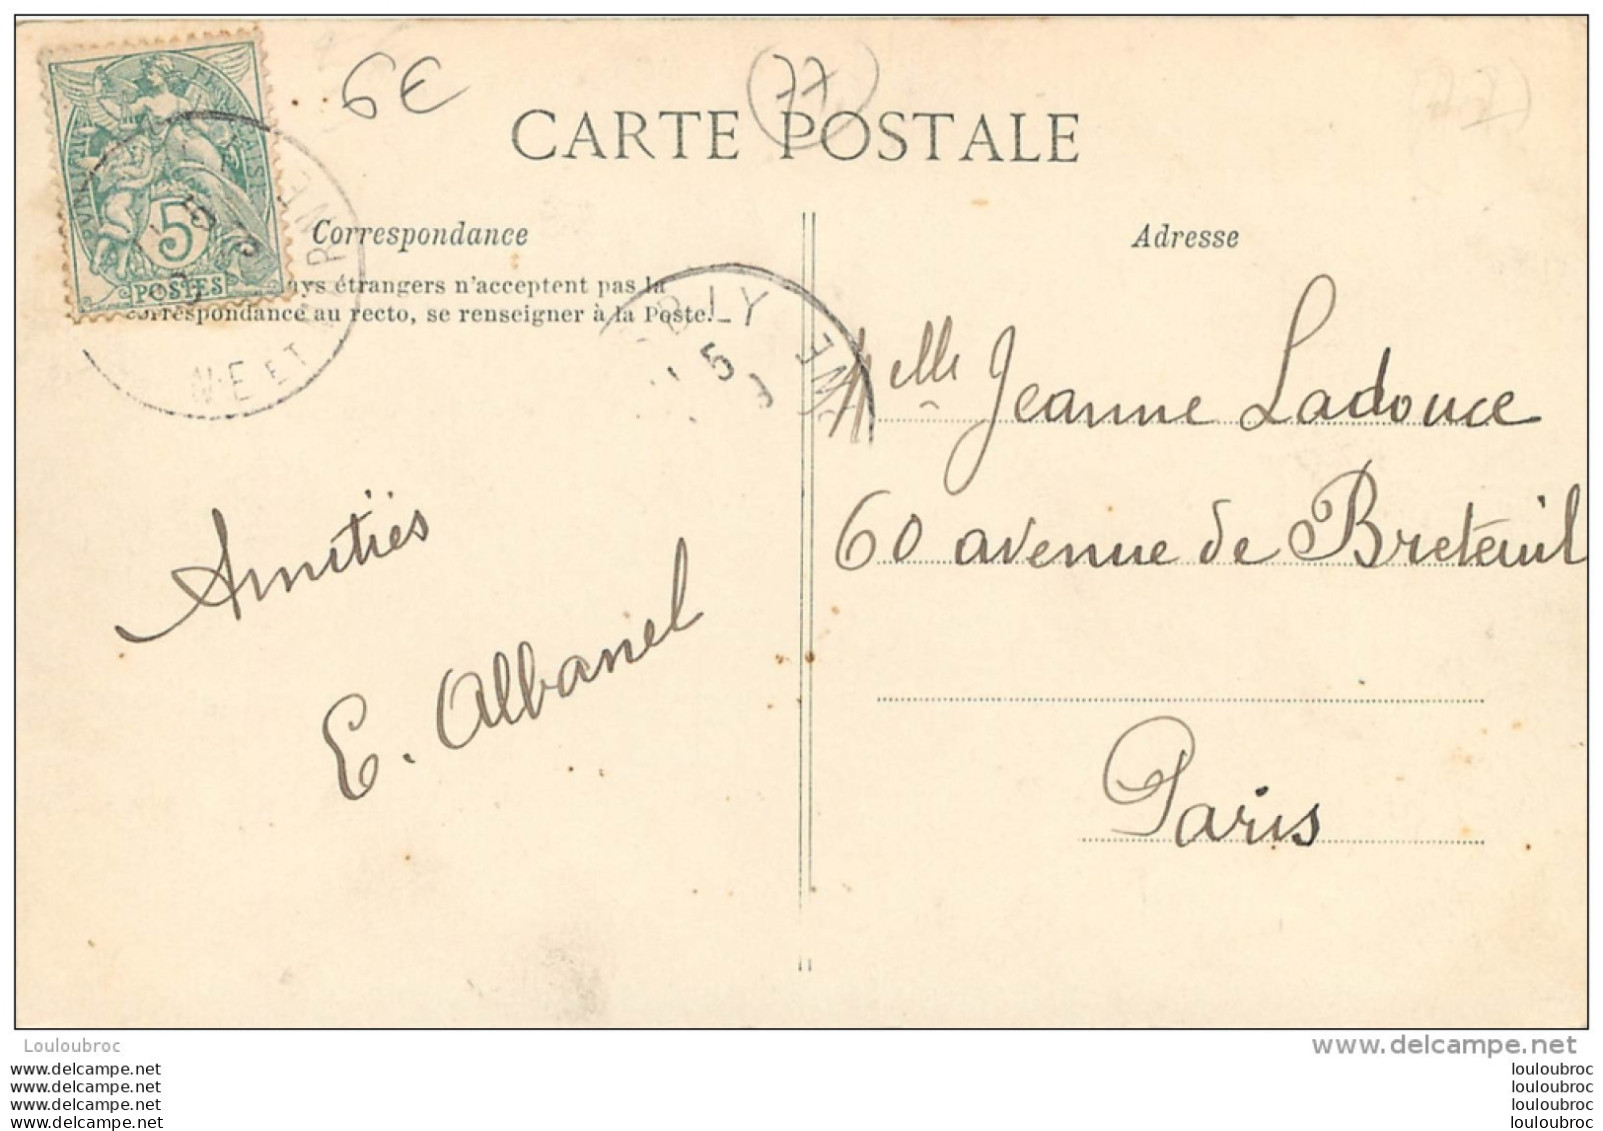 6€
77
CARTE POSTALE
Correspondance
Adresse
pays étrangers n'acceptent pas la
correspondance au recto, se renseigner à la Poste.
FRANÇAISE
5
POSTES
NE ET
5
Melle Jeanne Ladouce
60 avenue de Breteuil
Paris
Amitiés
E. Albanel
Louloubroc
www.delcampe.net
www.delcampe.net
www.delcampe.net
www.delcampe.net
www.delcampe.net
louloubroc
louloubroc
louloubroc
louloubroc